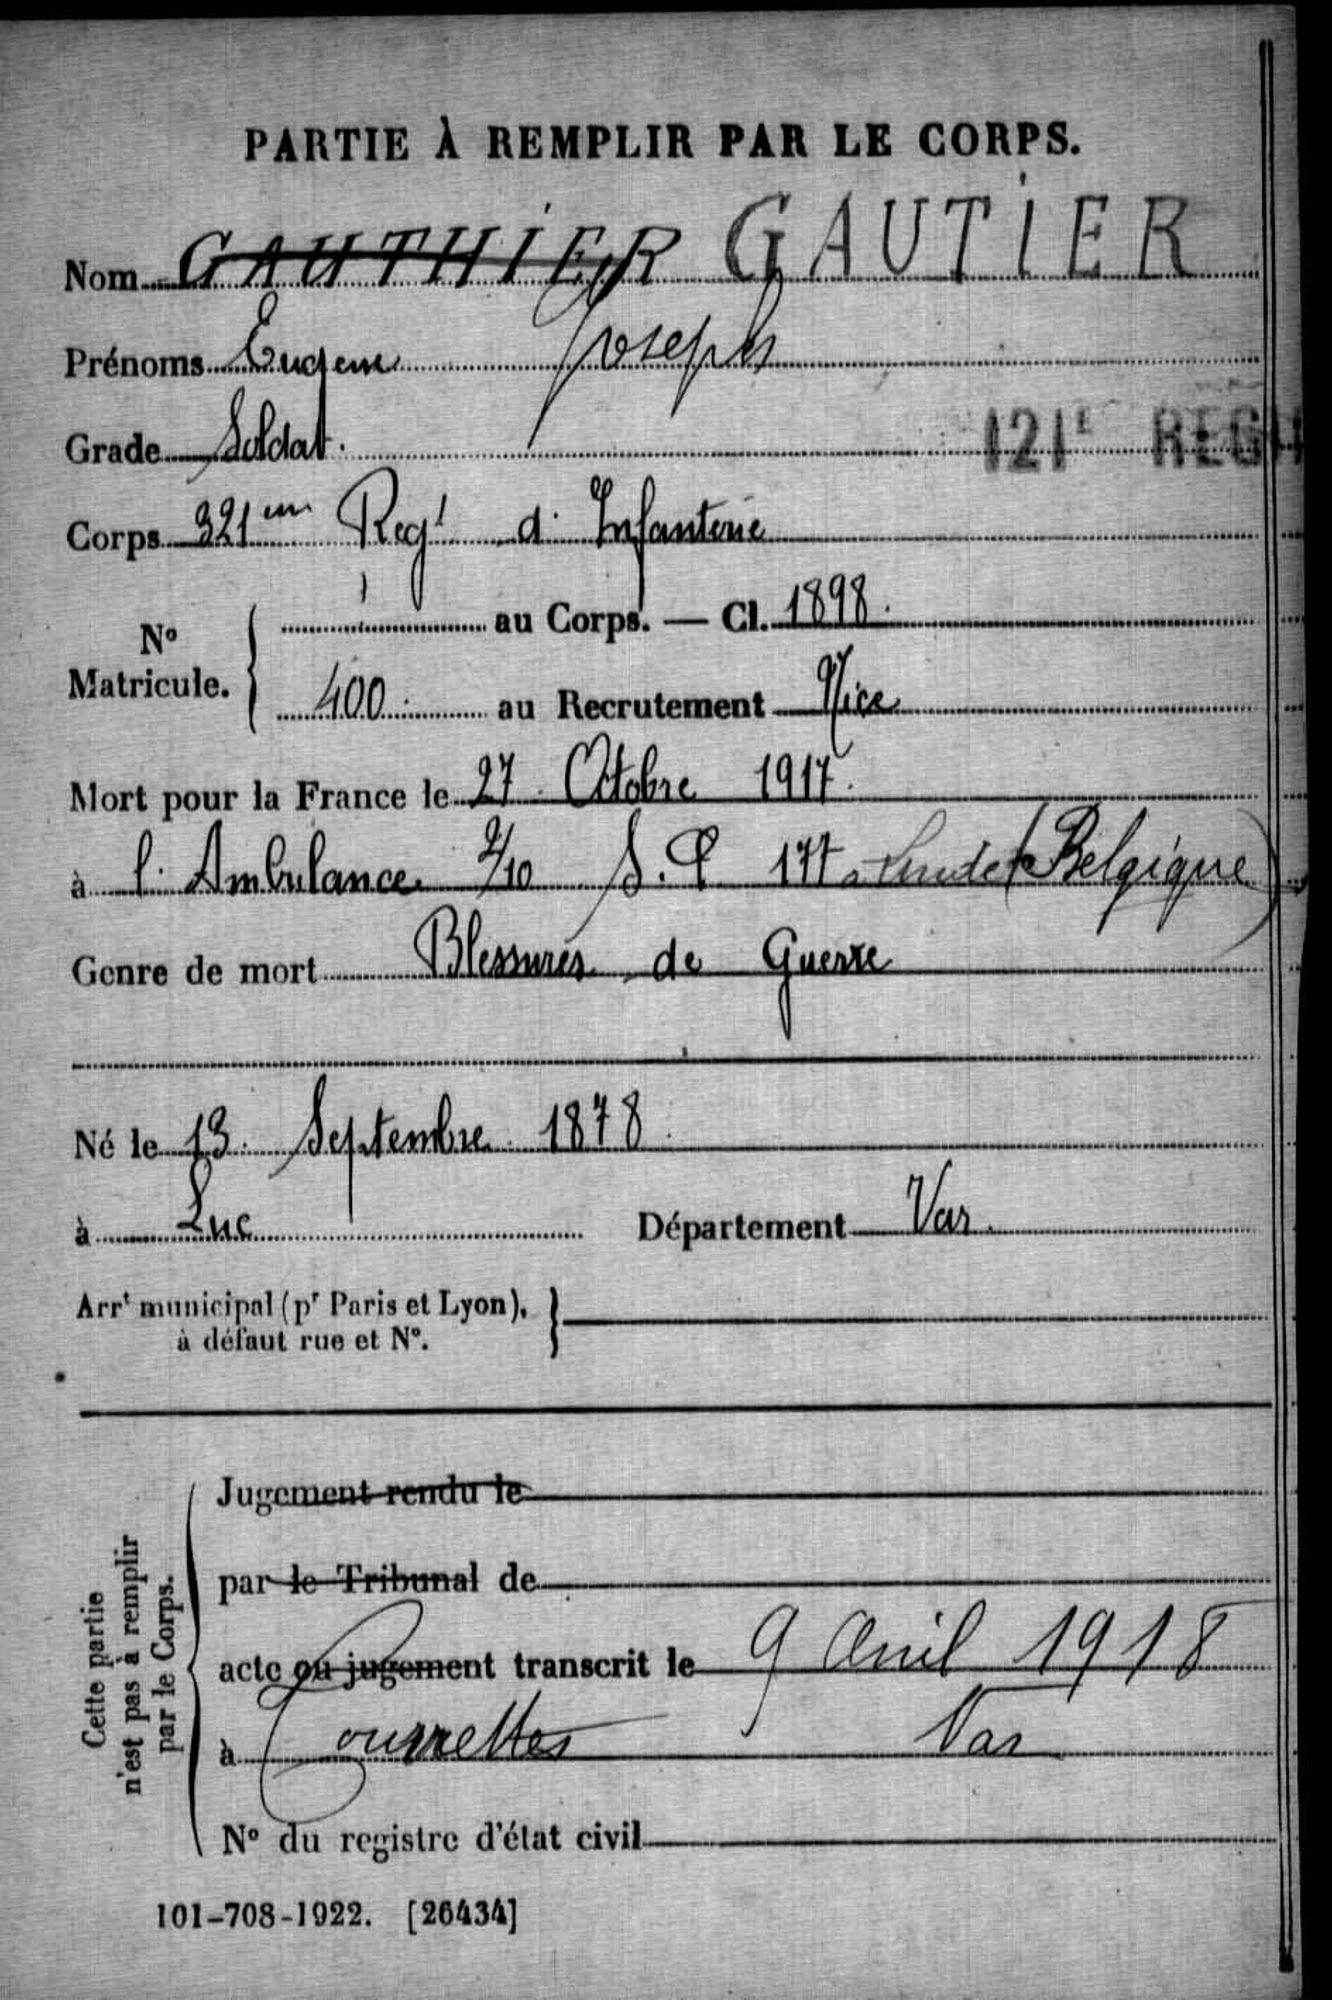 PARTIE À REMPLIR PAR LE CORPS.
Nom GAUTHIER GAUTIER
Prénoms Eugene Joseph
Grade Soldat.
121E REGI
Corps 321em Regt d'Infanterie
No Matricule.
au Corps. — Cl. 1898.
400 au Recrutement Nice
Mort pour la France le 27 Octobre 1917.
à l'Ambulance 2/10 S.P. 177 à (Belgique)
Genre de mort Blessures de Guerre
Né le 13 Septembre 1878
à Luc Département Var.
Arrt municipal (pr Paris et Lyon), à défaut rue et No.
Cette partie n'est pas à remplir par le Corps.
Jugement rendu le
par le Tribunal de
acte ou jugement transcrit le 9 Avril 1918
à Tourrettes Var
No du registre d'état civil
101-708-1922. [26434]